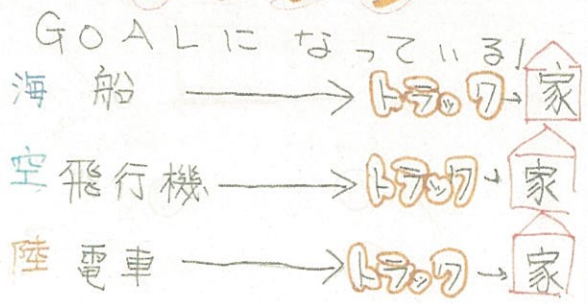 GOALになっている!
海 船 → トラック → 家
空 飛行機 → トラック → 家
陸 電車 → トラック → 家